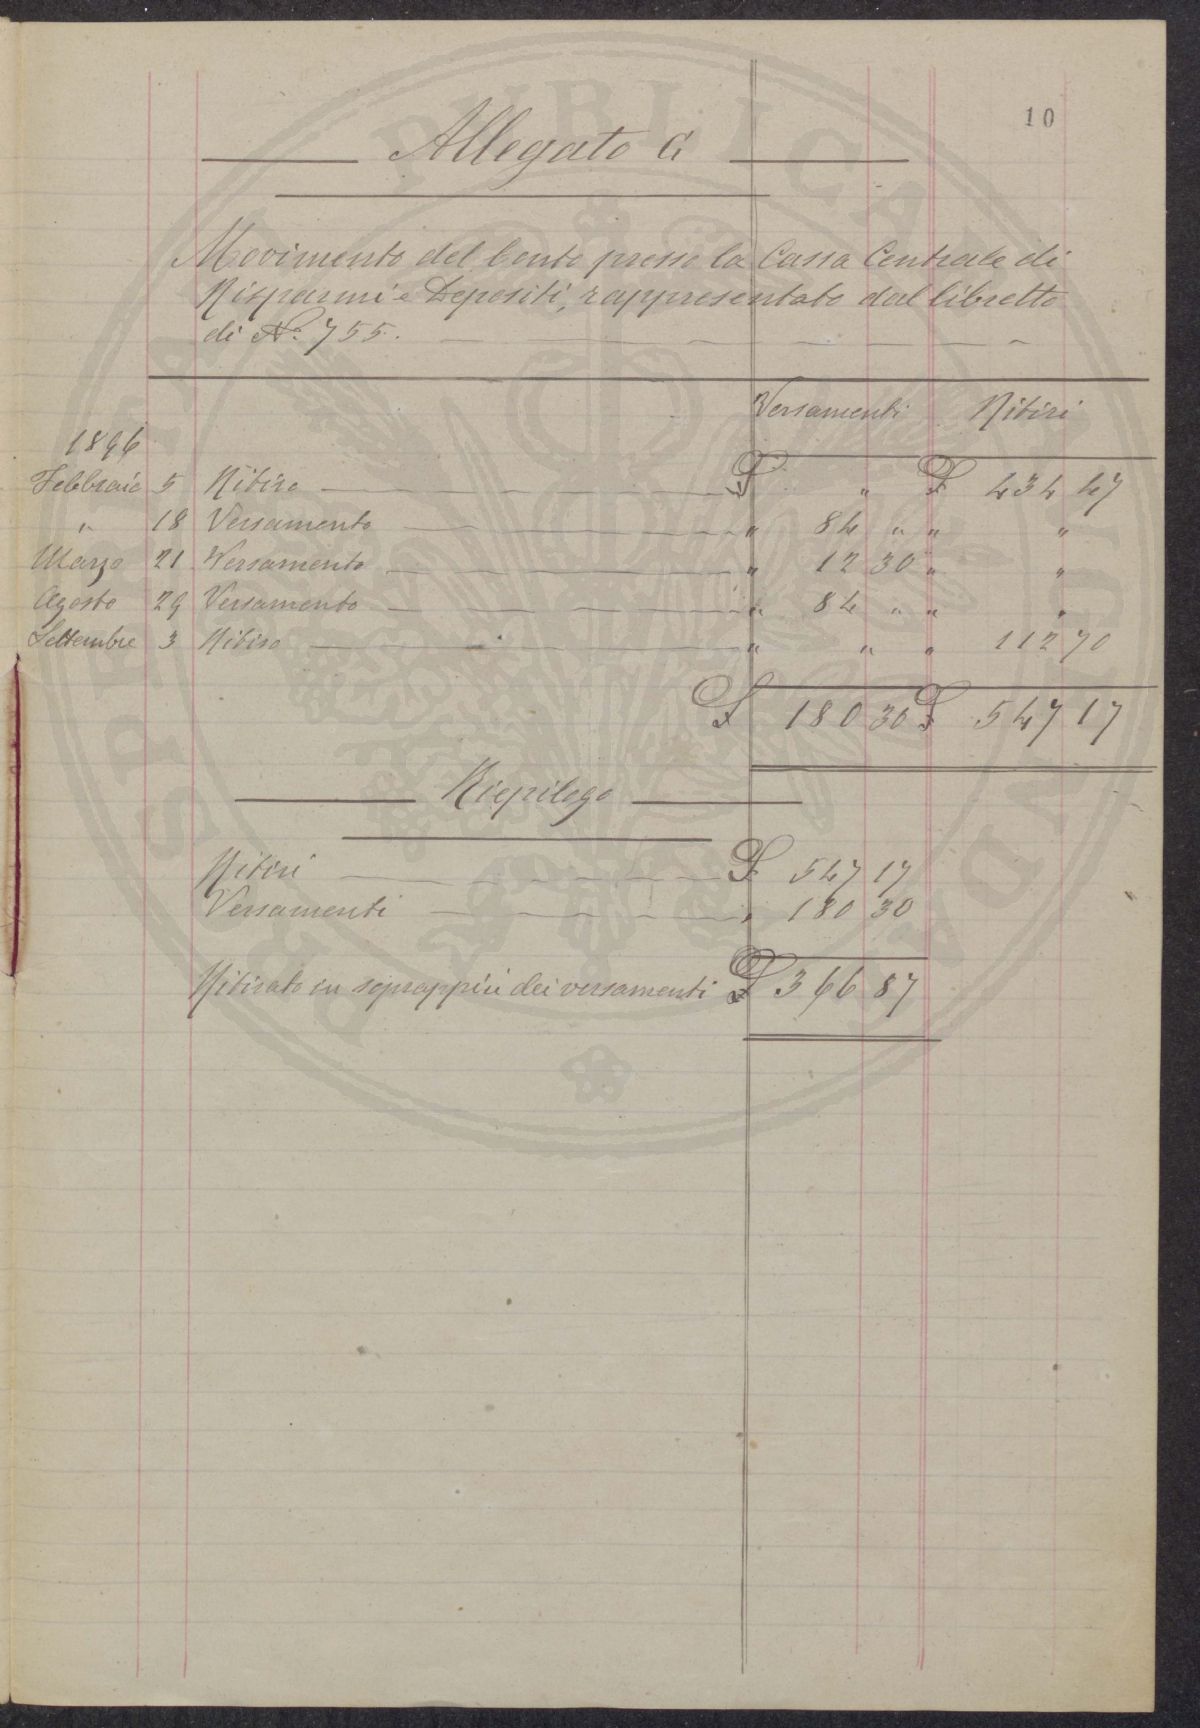 10
Allegato G
Movimento del Conto presso la Cassa Centrale di
Risparmi e Depositi, rappresentato dal libretto
di No. 755.
Versamenti Ritiri
1896
Febbraio 5 Ritiro £ " £ 434 47
" 18 Versamento " 84 " " "
Marzo 21 Versamento " 12 30 " "
Agosto 29 Versamento " 84 " " "
Settembre 3 Ritiro " " " 112 70
£ 180 30 £ 547 17
Riepilogo
Ritiri £ 547 17
Versamenti " 180 30
Ritirato in soprappiù dei versamenti £ 366 87